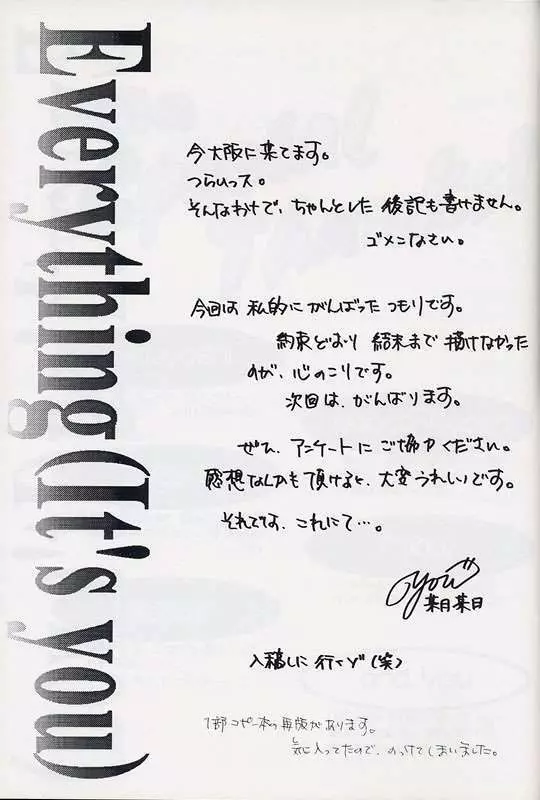 Everything (It's you)
今大阪に来てます。
つらいっス。
そんなわけで、ちゃんとした後記も書けません。
ゴメンなさい。
今回は私的にがんばったつもりです。
約束どおり結末まで描けなかった
のが、心のこりです。
次回は、がんばります。
ぜひ、アンケートにご協力ください。
感想なんかも頂けると、大変うれしいです。
それでは、これにて…。
you
某月某日
入稿しに行くぞ(笑)
1部コピー本の再版があります。
気に入ってたので、のっけてしまいました。